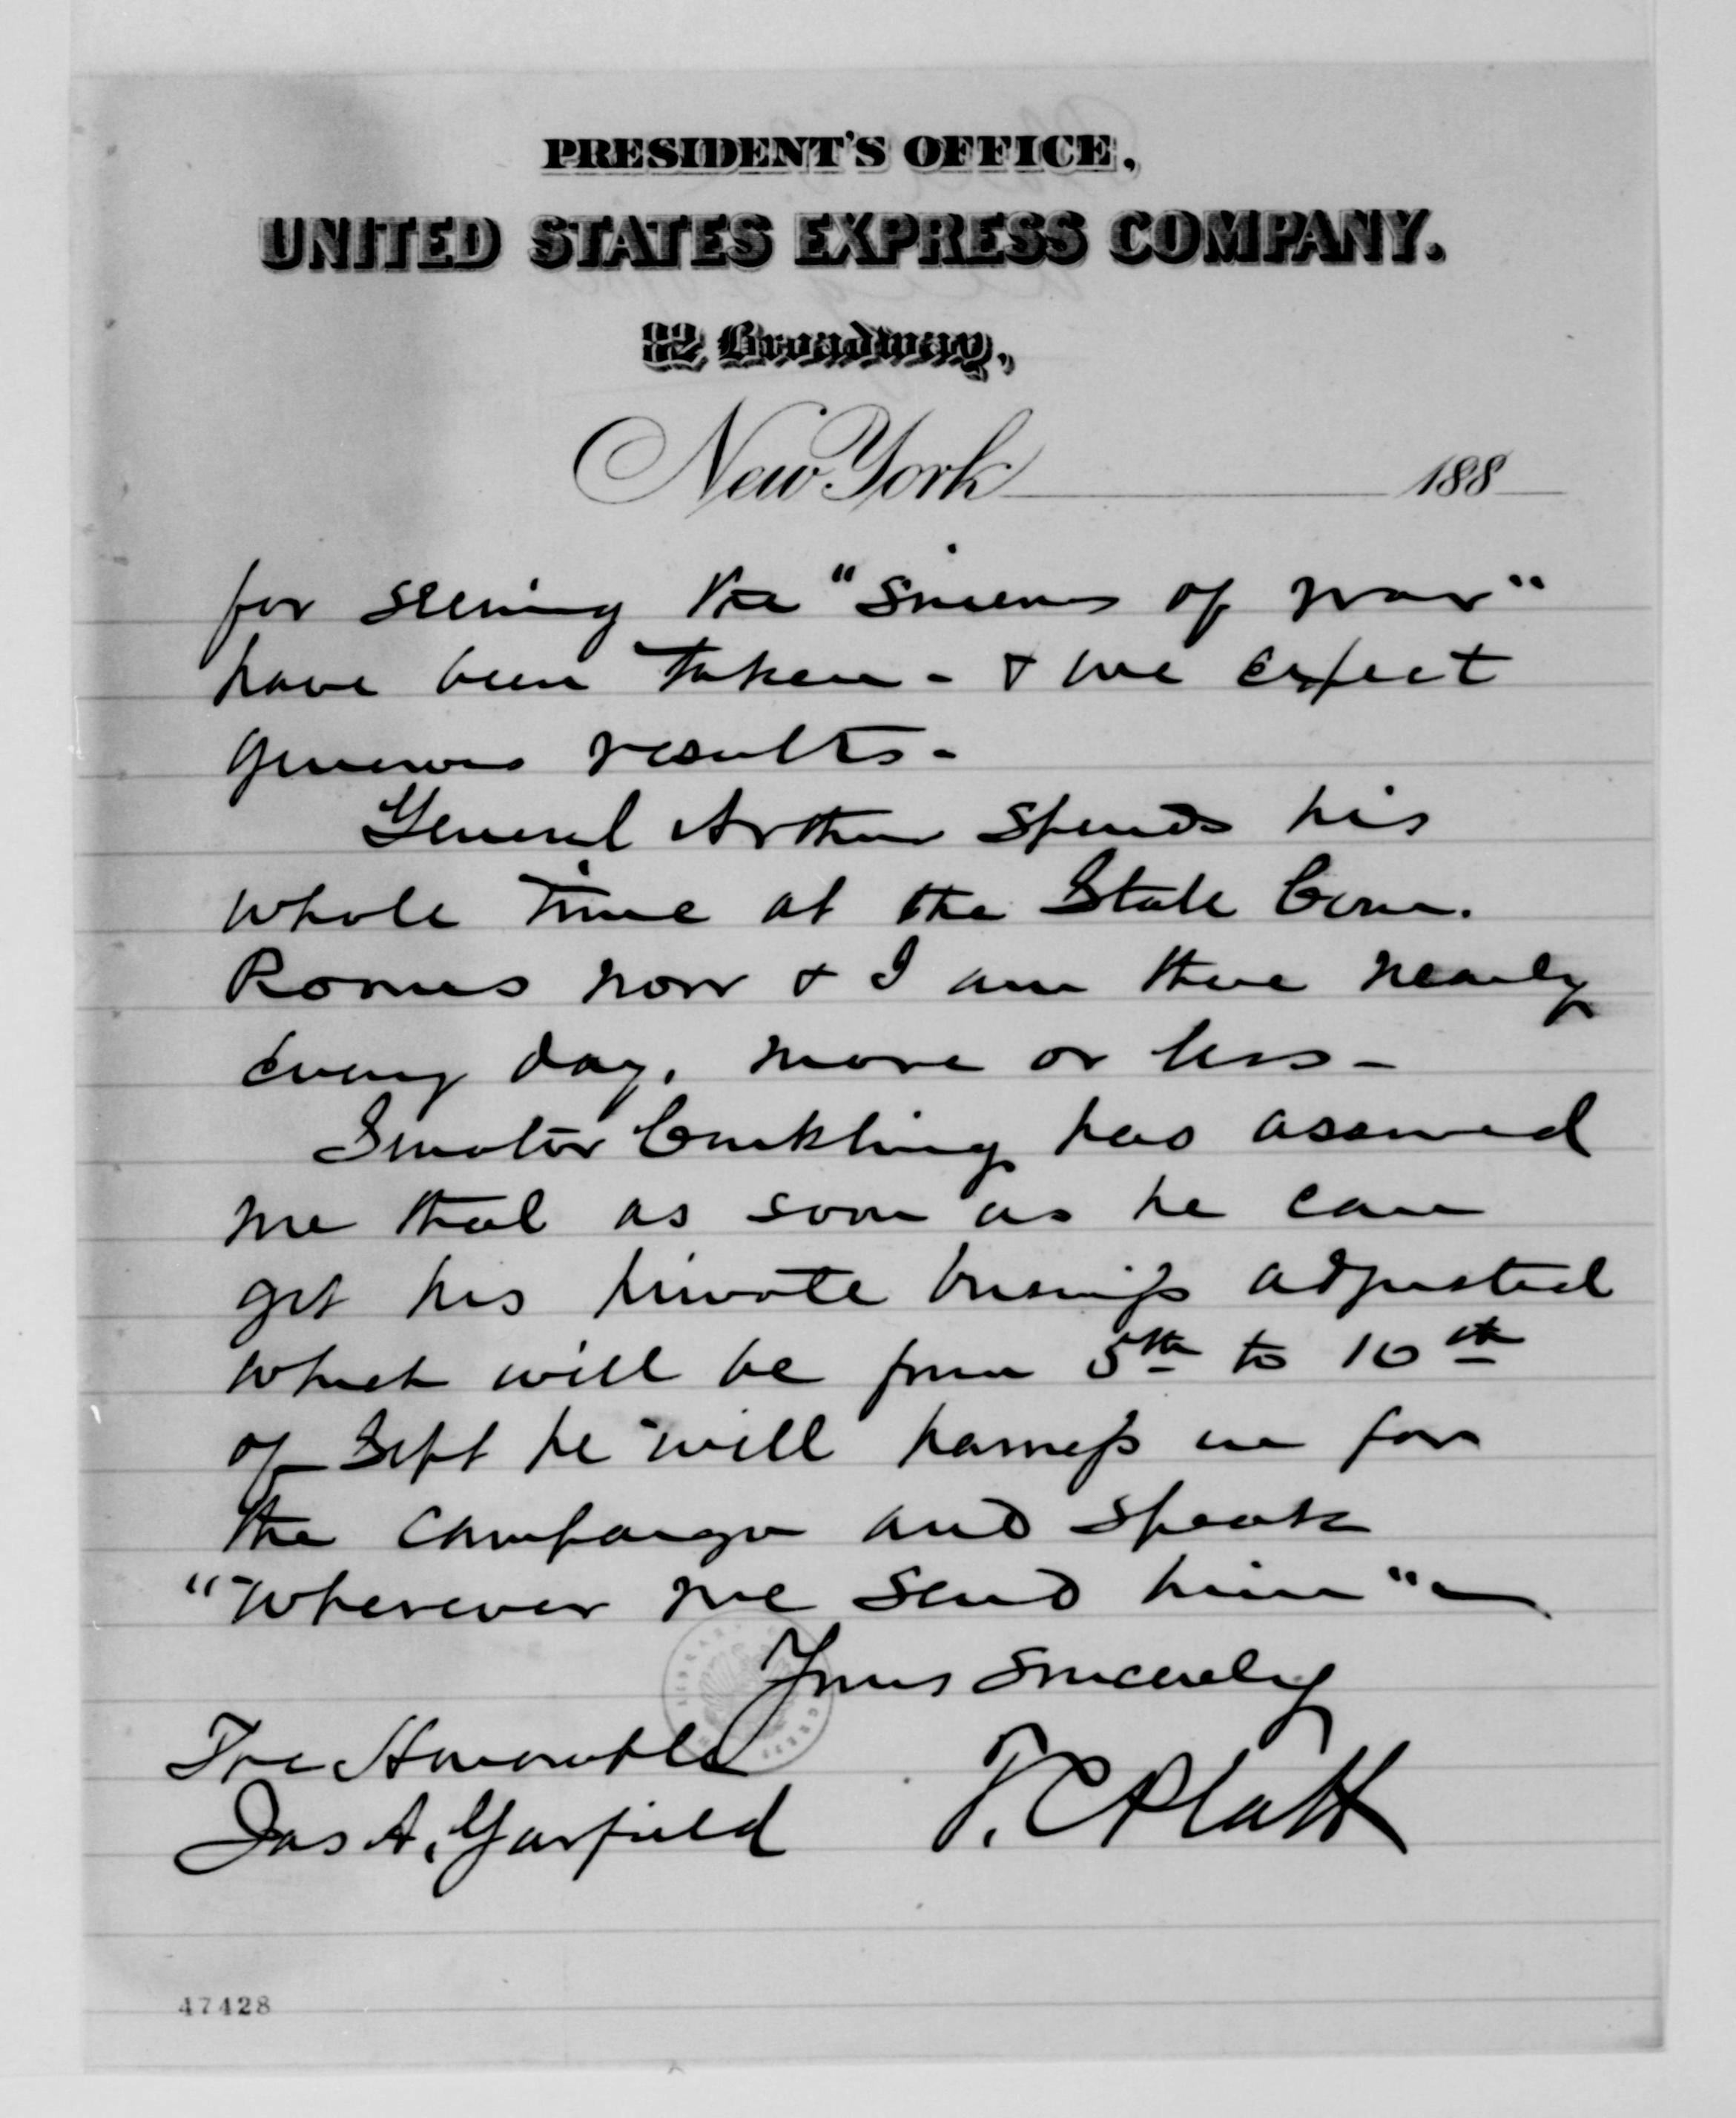 PRESIDENT'S OFFICE,
UNITED STATES EXPRESS COMPANY.
82 Broadway,
New York 188
for seeing the "Sinews of war"
have been taken - & we expect
generous results -
General Arthur spends his
whole time at the State Com.
Rooms now & I am there nearly
every day, more or less -
Senator Conkling has assured
me that as soon as he can
get his private business adjusted
which will be from 5th to 10th
of Sept he will harness up for
the campaign and speak
"Wherever we send him" -
Yours Sincerely
The Honorable
T. C. Platt
Jas A. Garfield
47428